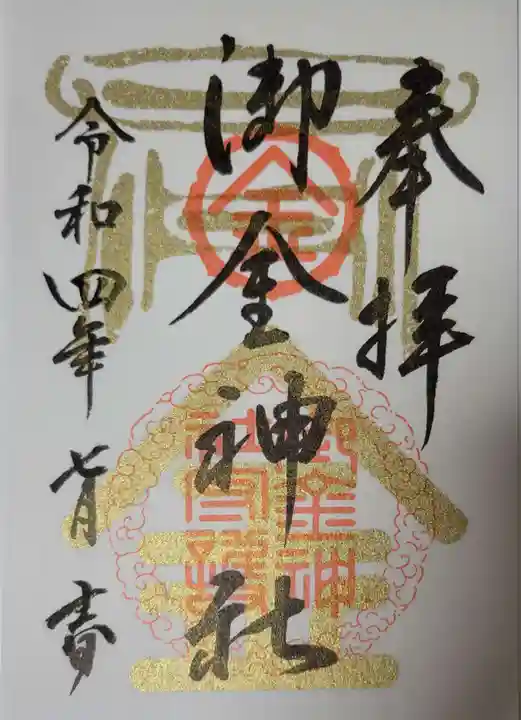 奉拝
御金神社
令和四年七月吉日
金
御金神